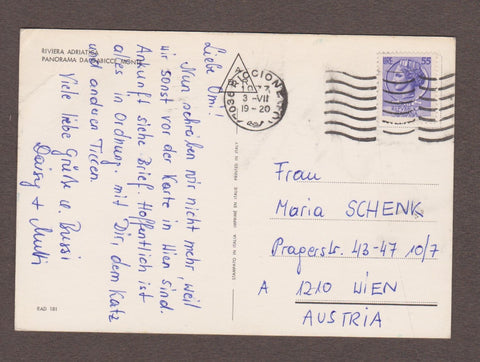 RIVIERA ADRIATICA
PANORAMA DA GABICCE MONTE
Liebe Omi!
Nun schreiben wir nicht mehr, weil
wir sonst vor der Karte in Wien sind.
Ankunft siehe Brief. Hoffentlich ist
alles in Ordnung. mit Dir, dem Katz
und anderen Tieren.
Viele liebe Grüße u. Bussi
Daisy + Mutti
RAD 181
STAMPATO IN ITALIA IMPRIMÉ EN ITALIE PRINTED IN ITALY
RICCIONE
3-VII
19-20
LIRE 55
Frau
Maria SCHENK
Pragerstr. 43-47 10/7
A 1210 WIEN
AUSTRIA